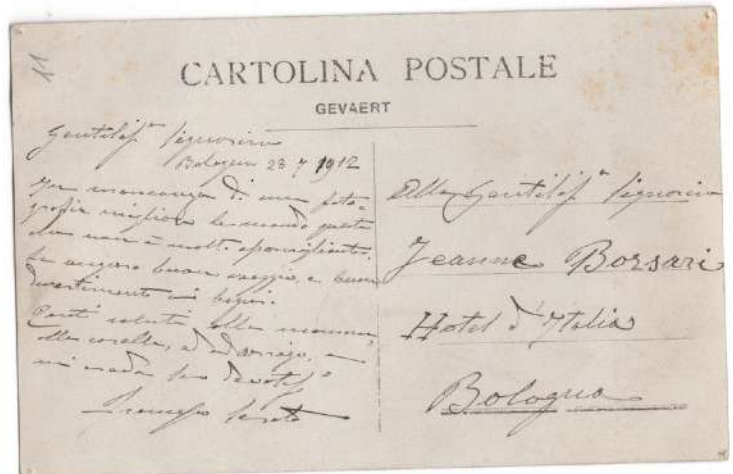 11
CARTOLINA POSTALE
GEVAERT
Gentilissª Signorina
Bologna 23 7 1912
In mancanza di una foto-
grafia migliore le mando questa
che non è molto somigliante.
Le auguro buon viaggio, e buon
divertimento ai bagni.
Tanti saluti alla mamma,
alla sorella, e ad Arrigo, e
mi creda suo devotissº
Alla Gentilissª Signorina
Jeanne Borsari
Hotel d'Italia
Bologna